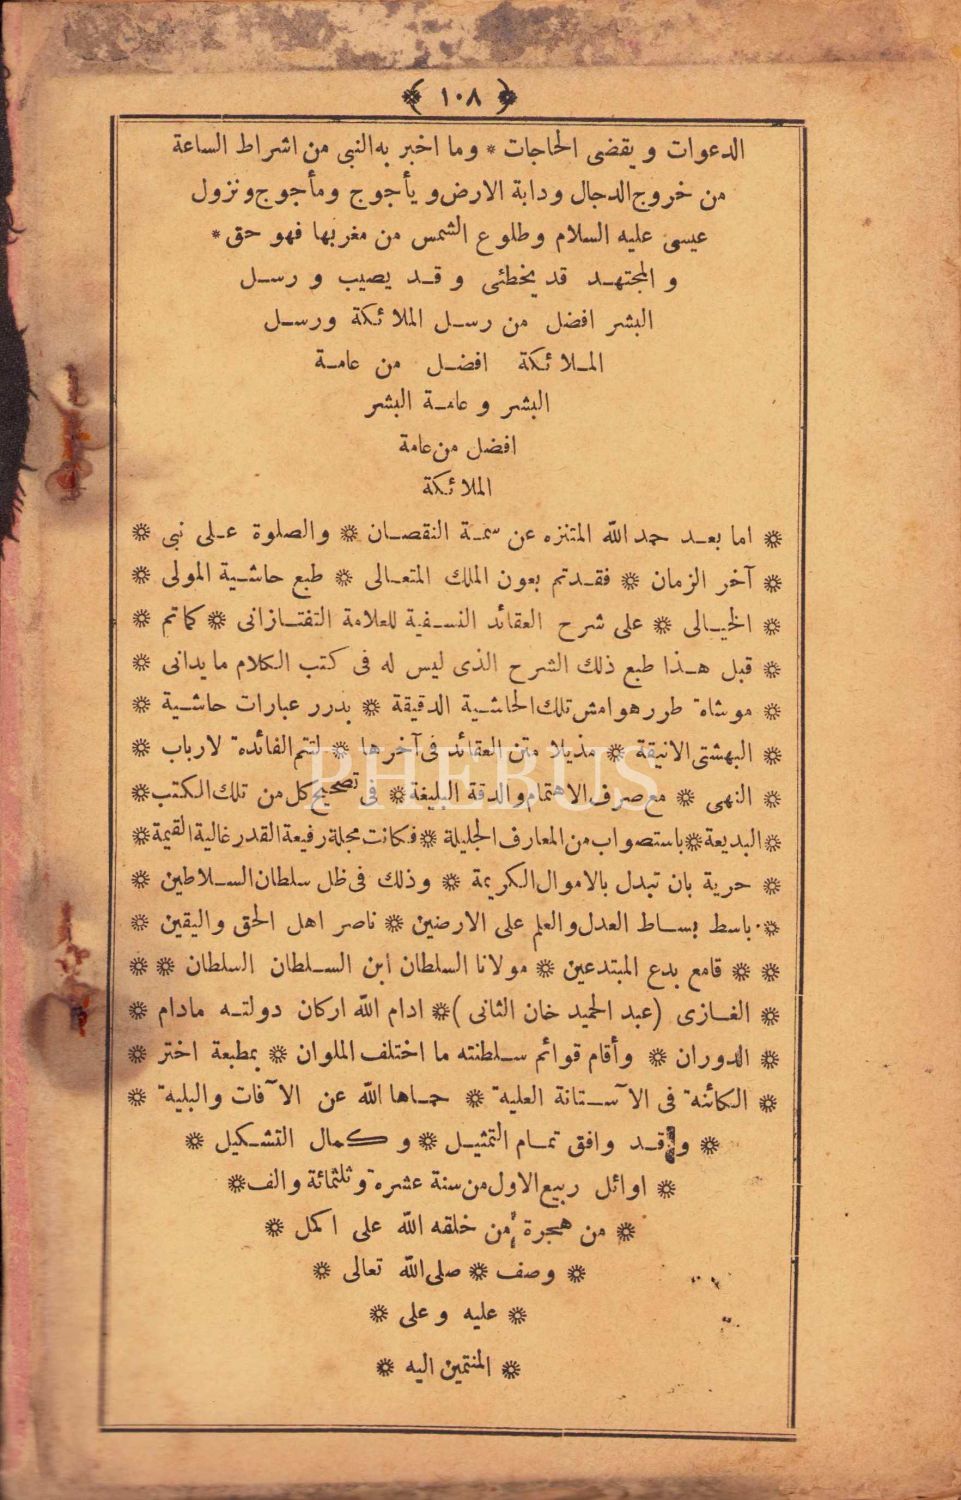 ﴿ ١٠٨ ﴾
الدعوات و يقضى الحاجات * وما اخبر به النبى من اشراط الساعة
من خروج الدجال ودابة الارض و يأجوج ومأجوج ونزول
عيسى عليه السلام وطلوع الشمس من مغربها فهو حق *
و المجتهد قد يخطئى و قد يصيب و رسل
البشر افضل من رسل الملائكة ورسل
الملائكة افضل من عامة
البشر و عامة البشر
افضل من عامة
الملائكة
❋ اما بعد حمد الله المتنزه عن سمة النقصان ❋ والصلوة على نبى ❋
❋ آخر الزمان ❋ فقد تم بعون الملك المتعالى ❋ طبع حاشية المولى ❋
❋ الخيالى ❋ على شرح العقائد النسفية للعلامة التفتازانى ❋ كما تم ❋
❋ قبل هذا طبع ذلك الشرح الذى ليس له فى كتب الكلام ما يدانى ❋
❋ موشاة طرر هوامش تلك الحاشية الدقيقة ❋ بدرر عبارات حاشية ❋
❋ البهشتى الانيقة ❋ مذيلا متن العقائد فى آخرها ❋ لتتم الفائدة لارباب ❋
❋ النهى ❋ مع صرف الاهتمام والدقة البليغة ❋ فى تصحيح كل من تلك الكتب ❋
❋ البديعة ❋ باستصواب من المعارف الجليلة ❋ فكانت مجلة رفيعة القدر غالية القيمة ❋
❋ حرية بان تبدل بالاموال الكريمة ❋ وذلك فى ظل سلطان السلاطين ❋
❋ باسط بساط العدل والعلم على الارضين ❋ ناصر اهل الحق واليقين ❋
❋ ❋ قامع بدع المبتدعين ❋ مولانا السلطان ابن السلطان السلطان ❋ ❋
❋ الغازى (عبد الحميد خان الثانى) ❋ ادام الله اركان دولته مادام ❋
❋ الدوران ❋ وأقام قوائم سلطنته ما اختلف الملوان ❋ بمطبعة اختر ❋
❋ الكائنة فى الآستانة العلية ❋ حماها الله عن الآفات والبلية ❋
❋ و قد وافق تمام التمثيل ❋ و كمال التشكيل ❋
❋ اوائل ربيع الاول من سنة عشرة وثلثمائة والف ❋
❋ من هجرة من خلقه الله على اكمل ❋
❋ وصف ❋ صلى الله تعالى ❋
❋ عليه و على ❋
❋ المنتمين اليه ❋
PHEBUS